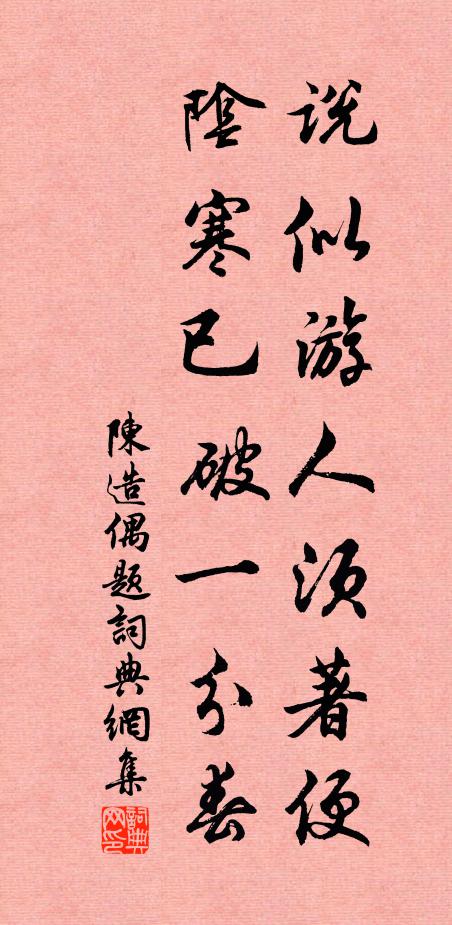 説似游人須著便
陰寒已破一分春
陳造偶題詞典網集
詞典网印